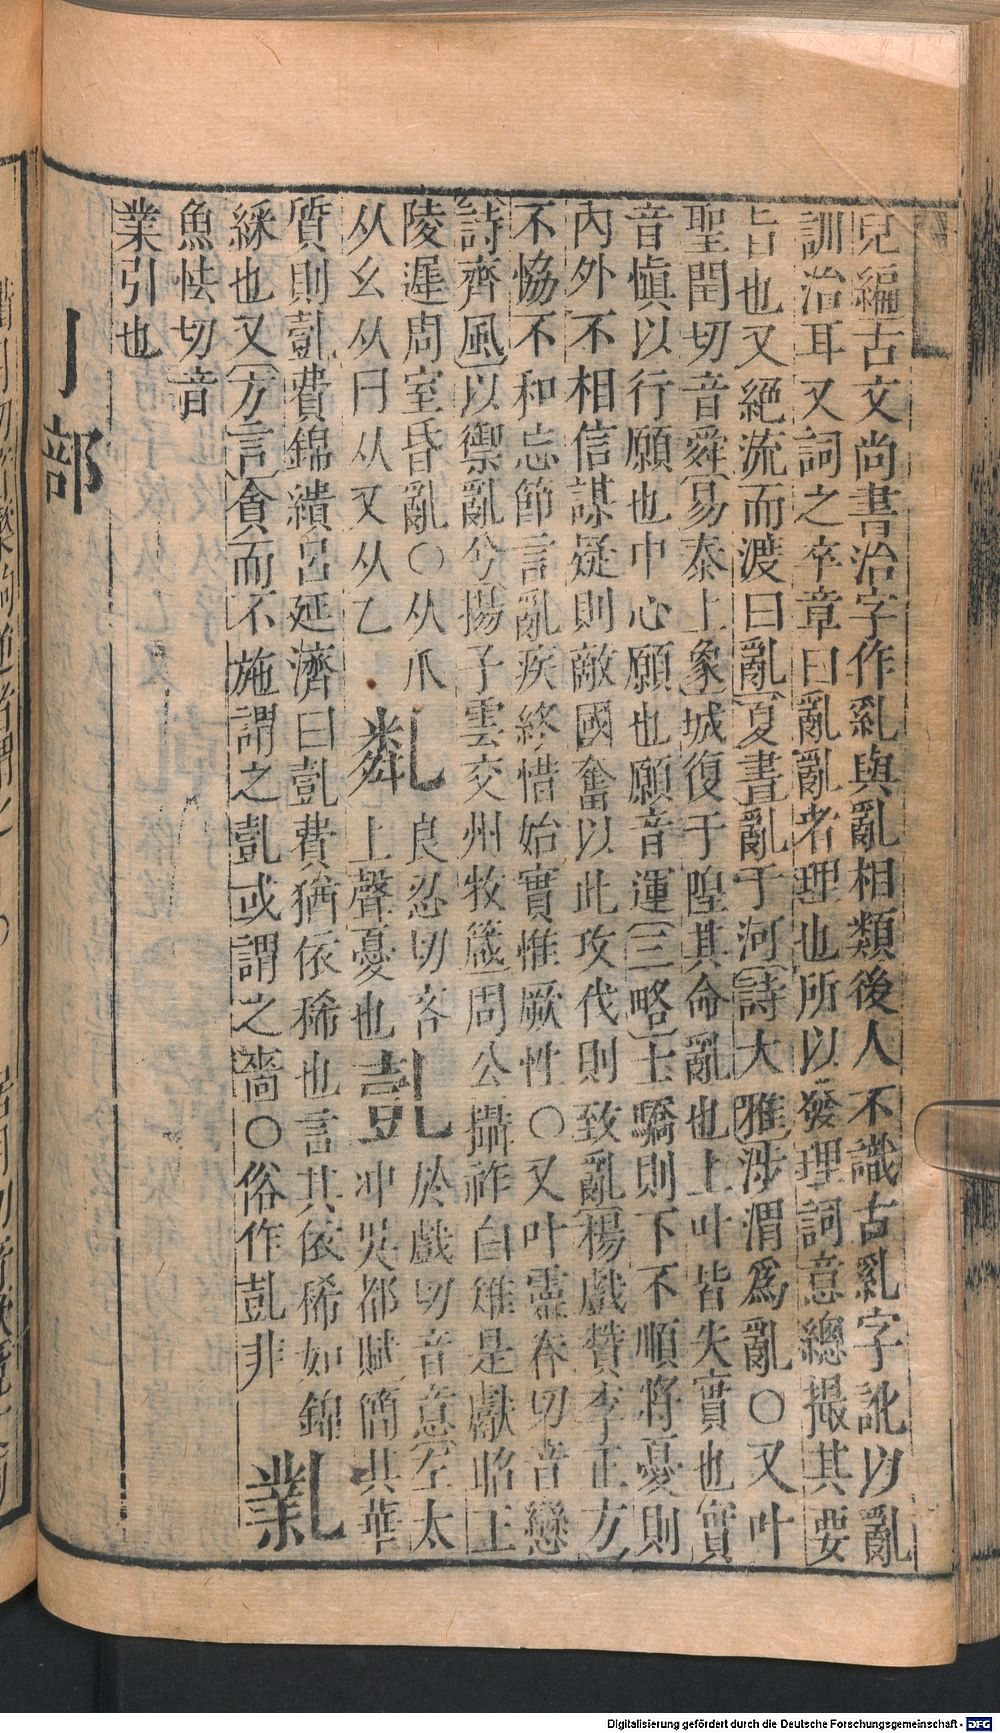 兒編古文尚書治字作乿與亂相類後人不識古乿字訛以亂
訓治耳又詞之卒章曰亂亂者理也所以發理詞意總撮其要
旨也又絶流而渡曰亂夏書亂于河詩大雅涉渭爲亂○又叶
聖閏切音舜易泰上象城復于隍其命亂也上叶皆失實也實
音愼以行願也中心願也願音運三略士驕則下不順將憂則
內外不相信謀疑則敵國奮以此攻伐則致亂楊戲贊李正方
不恊不和忘節言亂疾終惜始實惟厥性○又叶靈眷切音戀
詩齊風以禦亂兮揚子雲交州牧箴周公攝祚白雉是獻昭王
陵遲周室昏亂○从爪
从幺从冂从又从乙
良忍切吝
上聲憂也
於戲切音意左太
冲吳都賦簡其華
質則亄費錦繢呂延濟曰亄費猶依稀也言其依稀如錦
綵也又方言貪而不施謂之亄或謂之嗇○俗作亄非
魚怯切音
業引也
亅部
Digitalisierung gefördert durch die Deutsche Forschungsgemeinschaft - DFG